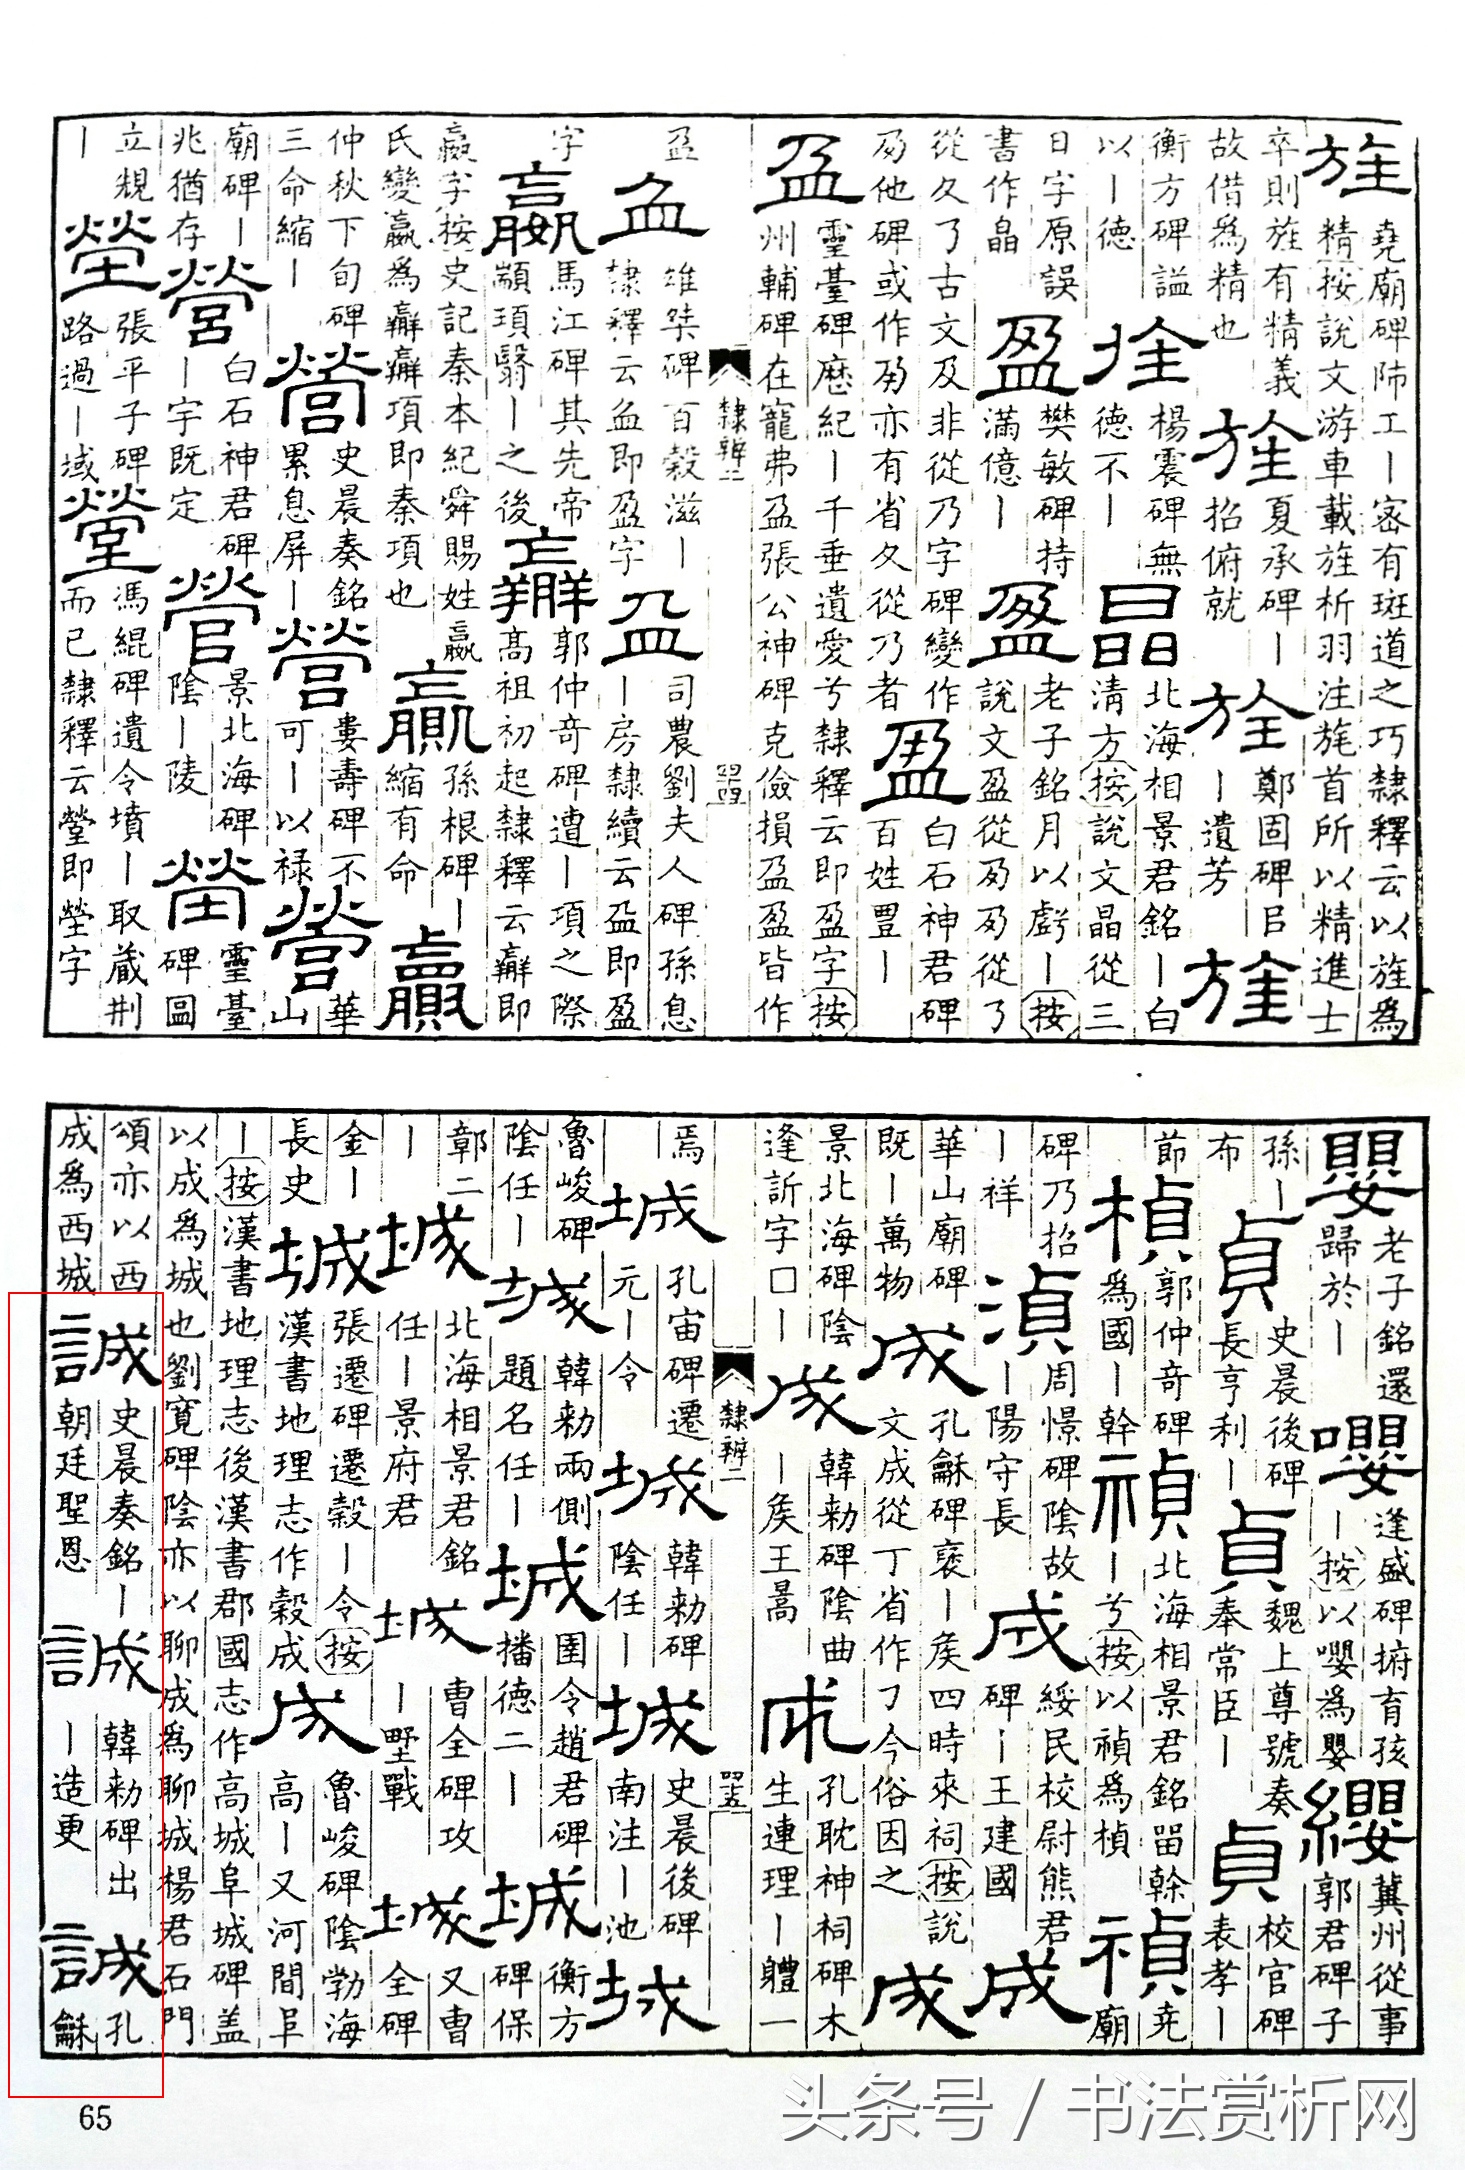 旌
堯廟碑師工丨密有斑道之巧隸釋云以旌為
精按說文游車載旌析羽注旄首所以精進士
卒則旌有精義
故借為精也
旌
夏承碑丨
招俯就
旌
鄭固碑㠯
丨遺芳
旌
衡方碑謚
以丨德
旌
楊震碑無
德不丨
晶
北海相景君銘丨白
清方按說文晶從三
日字原誤
書作晶
盈
樊敏碑持
滿億丨
盈
老子銘月以虧丨按
說文盈從夃夃從了
從夂了古文及非從乃字碑變作
夃他碑或作夃亦有省夂從乃者
盈
白石神君碑
百姓豐丨
盈
靈臺碑歷紀丨千垂遺愛兮隸釋云即盈字按
州輔碑在寵弗盈張公神碑克儉損盈盈皆作
隸辨二
四四
盈
盁
雄桀碑百穀滋丨
隸釋云盁即盈字
盁
司農劉夫人碑孫息
丨房隸續云盁即盈
字
嬴
馬江碑其先帝
顓頊翳丨之後
嬴
郭仲奇碑遭丨項之際
高祖初起隸釋云嬴即
嬴字按史記秦本紀舜賜姓嬴
氏變嬴為嬴嬴項即秦項也
嬴
孫根碑丨
縮有命
嬴
仲秋下旬碑
三命縮丨
營
史晨奏銘
累息屏丨
營
婁壽碑不
可丨以祿
營
華
山
廟碑丨
兆猶存
營
白石神君碑
丨宇既定
營
景北海碑
陰丨陵
塋
靈臺
碑圖
立規
丨
塋
張平子碑
路過丨域
塋
馮緄碑遺令墳丨取藏荆
而已隸釋云塋即塋字
嬰
老子銘還
歸於丨
嚶
逢盛碑捬育孩
丨按以嚶為嬰
纓
冀州從事
郭君碑子
孫丨
布
貞
史晨後碑
長亨利丨
貞
魏上尊號奏
奉常臣丨
貞
校官碑
表孝丨
節
楨
郭仲奇碑
為國丨幹
禎
北海相景君銘畱幹
丨兮按以禎為楨
禎
堯
廟
碑乃招
丨祥
湞
周憬碑陰故
丨陽守長
成
綏民校尉熊君
碑丨王建國
成
華山廟碑
既丨萬物
成
孔龢碑褒丨矦四時來祠按說
文成從丁省作丁今俗因之
成
景北海碑陰
逢訢字口丨
成
韓勑碑陰曲
丨矦王暠
成
孔耽神祠碑木
生連理丨軆一
隸辨二
四五
焉
城
孔宙碑遷
元丨令
城
韓勑碑
陰任丨
城
史晨後碑
南注丨池
城
魯峻碑
陰任丨
城
韓勑兩側
題名任丨
城
圉令趙君碑
播德二丨
城
衡方
碑保
鄣二
丨
城
北海相景君銘
任丨景府君
城
曹全碑攻
丨壄戰
城
又曹
全碑
金丨
長史
城
張遷碑遷穀丨令按
漢書地理志作穀成
成
魯峻碑陰勃海
高丨又河間阜
丨按漢書地理志後漢書郡國志作高城阜城碑盖
以成為城也劉寬碑陰亦以聊成為聊城楊君石門
頌亦以西
成為西城
誠
史晨奏銘丨
朝廷聖恩
誠
韓勑碑出
丨造更
誠
孔
龢
65
头条号 / 书法赏析网